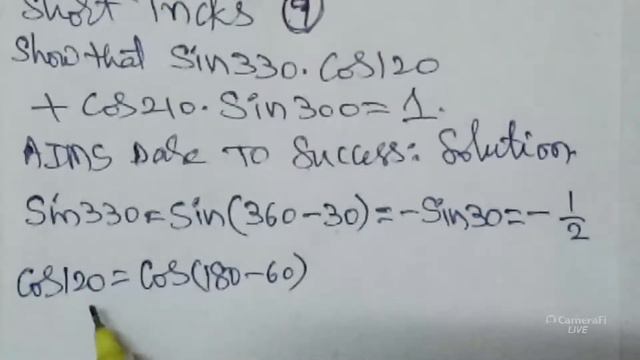 Short Tricks (9)
Show that Sin330.Cos120
+ Cos210.Sin300=1.
AIMS DaRe To Success: Solution
Sin330=Sin(360-30)=-Sin30=-1/2
Cos120=Cos(180-60)
CameraFi
LIVE